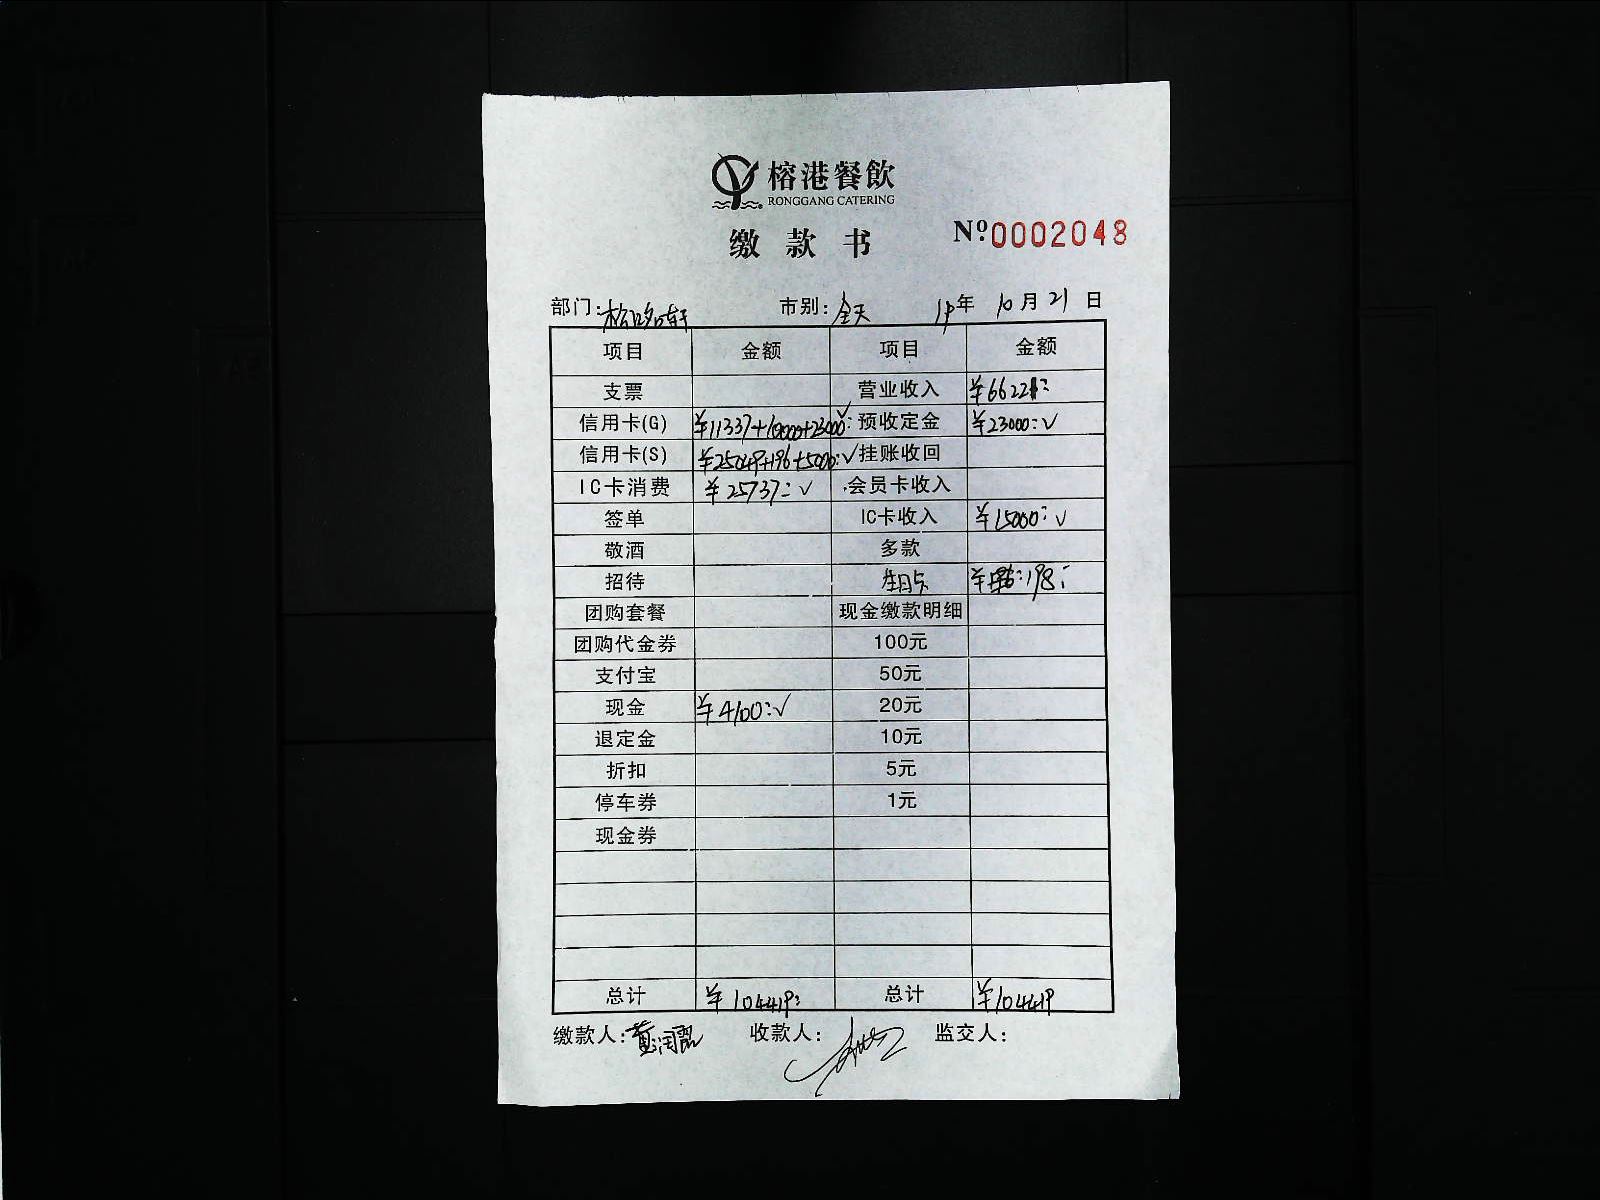 榕港餐飲
RONGGANG CATERING
缴款书 Nº.0002048
部门: 轩 市别: 全天 19年 10月 21日
项目 金额 项目 金额
支票 营业收入 ¥66221:
信用卡(G) ¥11337+10000+23000:✓ 预收定金 ¥23000:✓
信用卡(S) ¥25049+196+5000:✓ 挂账收回
IC卡消费 ¥25737:✓ 会员卡收入
签单 IC卡收入 ¥15000:✓
敬酒 多款
招待 生日卡 ¥ 198:
团购套餐 现金缴款明细
团购代金券 100元
支付宝 50元
现金 ¥4100:✓ 20元
退定金 10元
折扣 5元
停车券 1元
现金券
总计 ¥104419: 总计 ¥104419
缴款人: 收款人: 监交人: